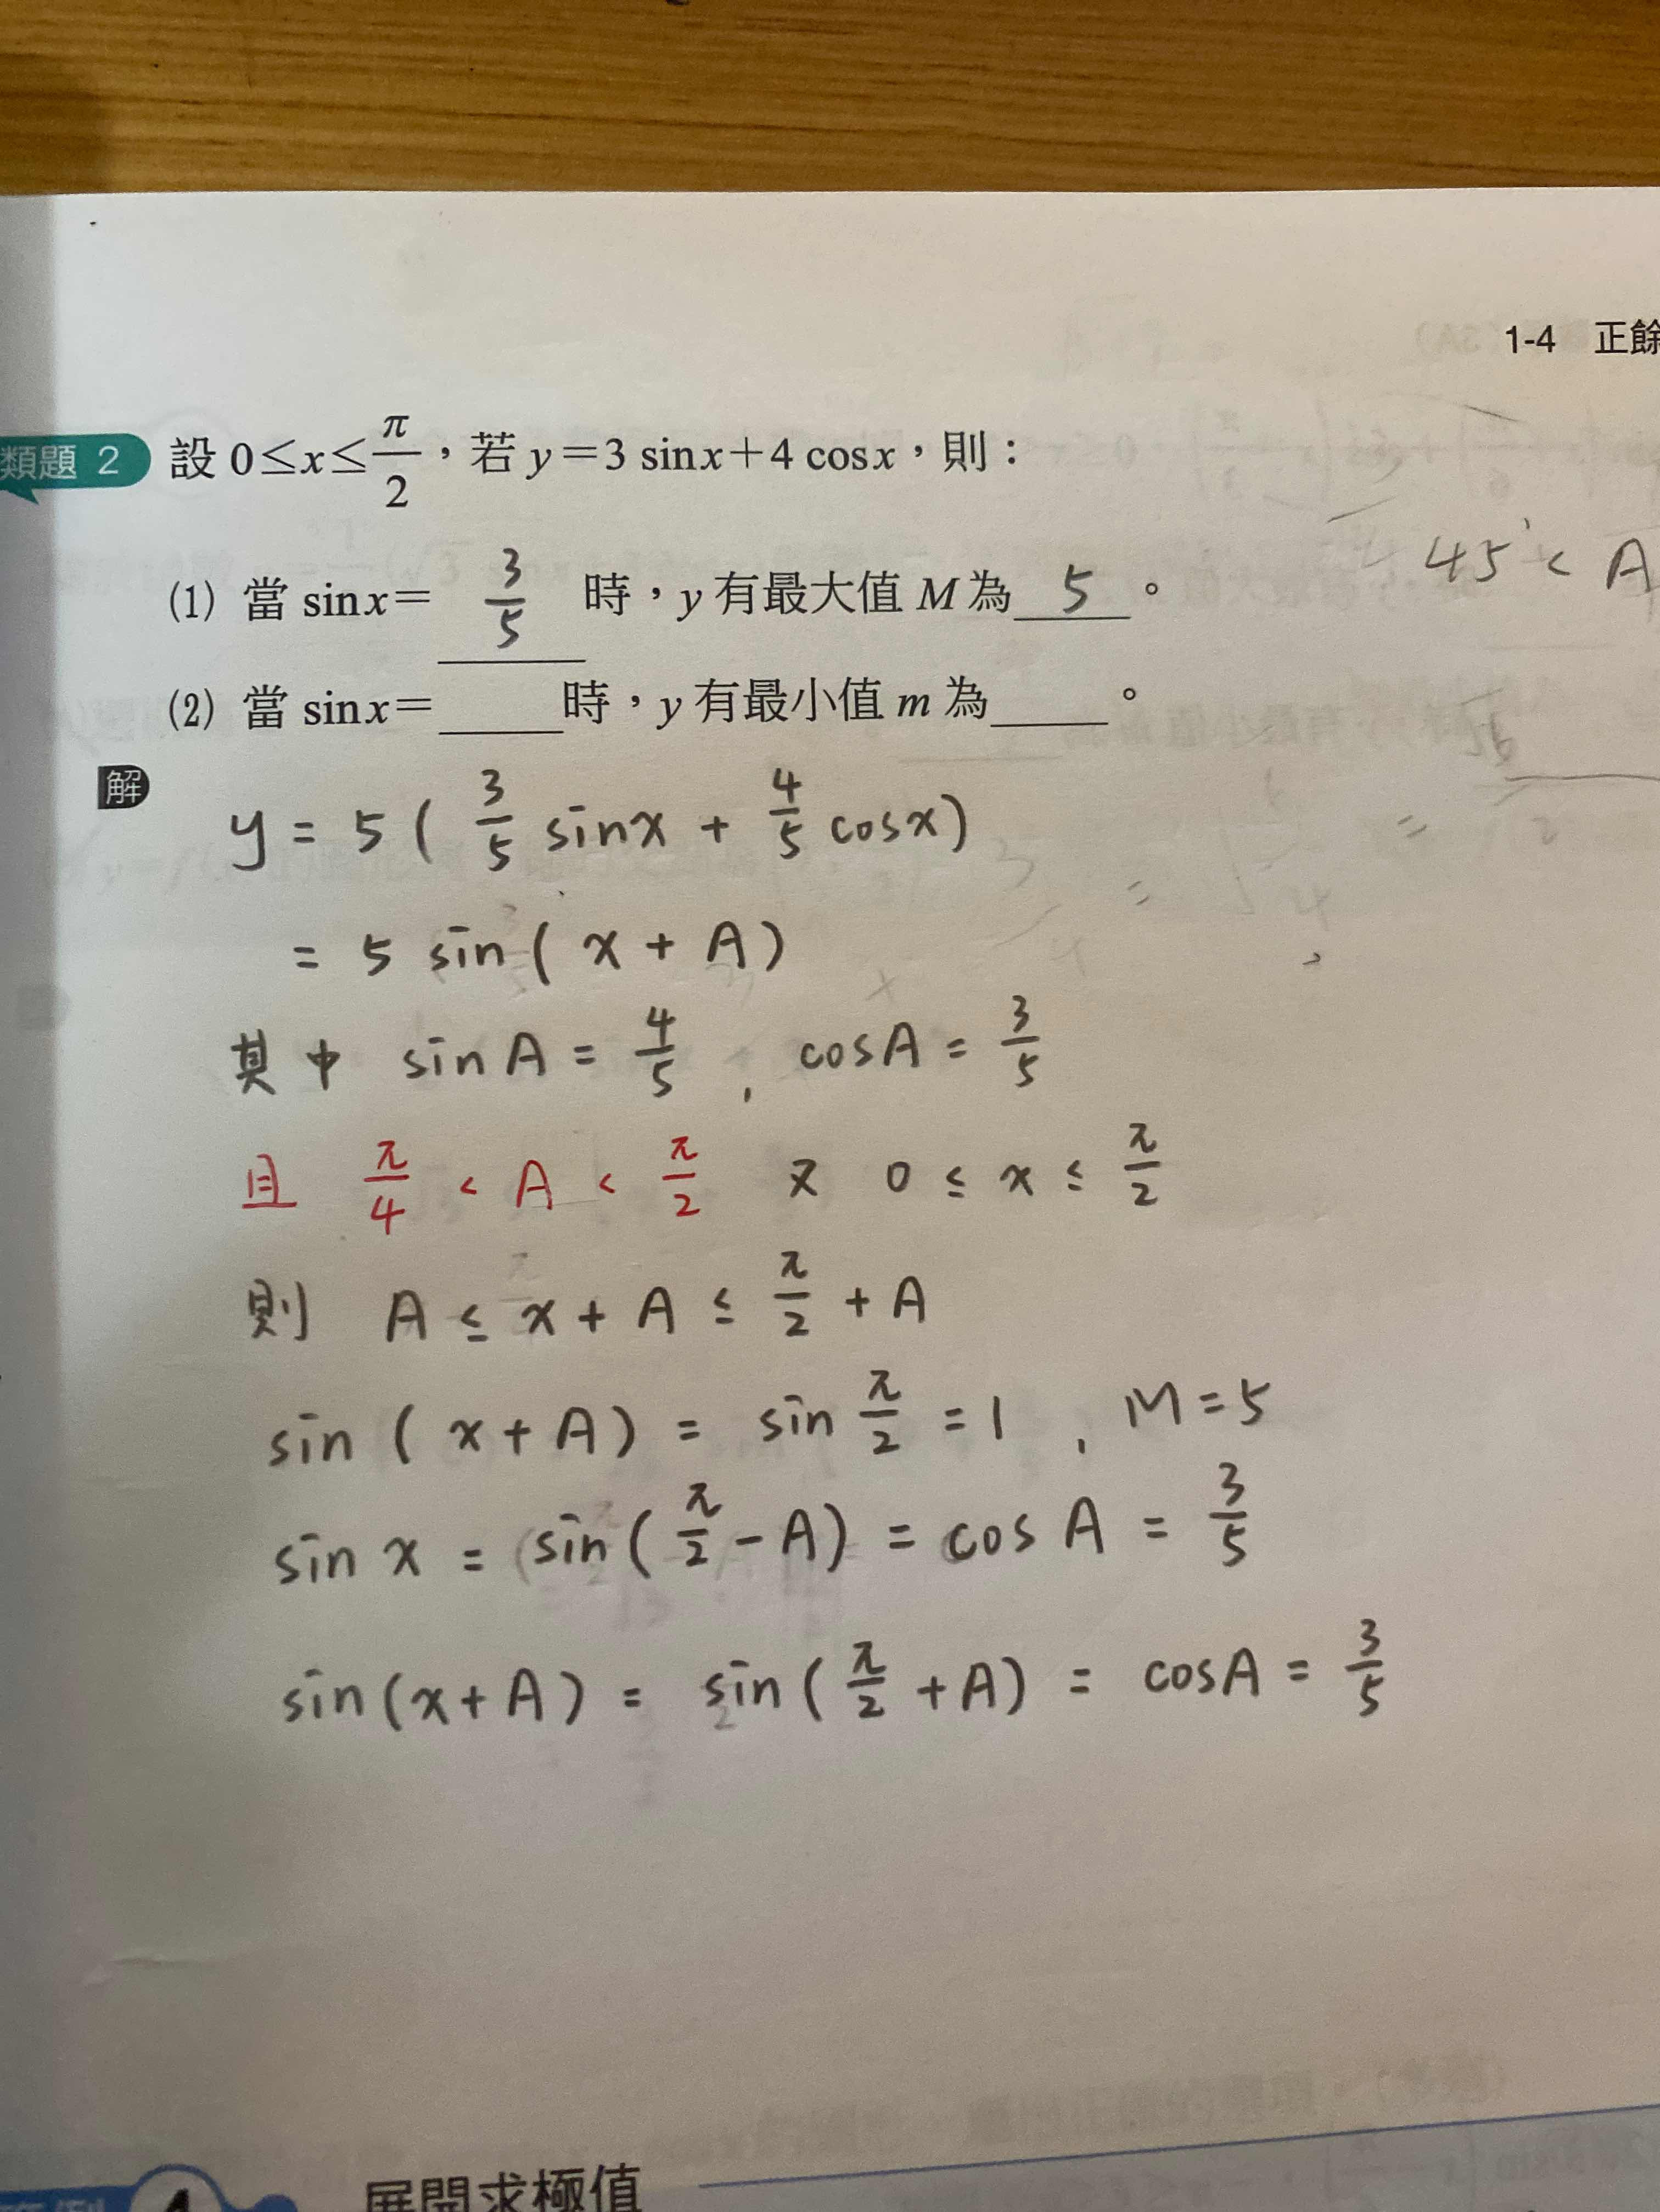 1-4 正餘
類題 2 設 0≤x≤π/2，若 y=3 sinx+4 cosx，則：
45° < A
(1) 當 sinx= 3/5 時，y 有最大值 M 為 5 。
(2) 當 sinx= ____ 時，y 有最小值 m 為 ____ 。
解
y = 5 ( 3/5 sinx + 4/5 cosx )
= 5 sin ( x + A )
其中 sin A = 4/5 , cosA = 3/5
且 π/4 < A < π/2 又 0 ≤ x ≤ π/2
則 A ≤ x + A ≤ π/2 + A
sin ( x + A ) = sin π/2 = 1 , M = 5
sin x = sin ( π/2 - A ) = cos A = 3/5
sin ( x + A ) = sin ( π/2 + A ) = cosA = 3/5
4 展開求極值